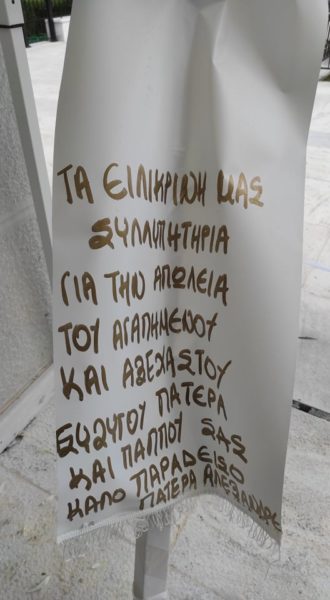 ΤΑ ΕΙΛΙΚΡΙΝΗ ΜΑΣ
ΣΥΛΛΥΠΗΤΗΡΙΑ
ΓΙΑ ΤΗΝ ΑΠΩΛΕΙΑ
ΤΟΥ ΑΓΑΠΗΜΕΝΟΥ
ΚΑΙ ΑΞΕΧΑΣΤΟΥ
ΣΥΖΥΓΟΥ ΠΑΤΕΡΑ
ΚΑΙ ΠΑΠΠΟΥ ΣΑΣ
ΚΑΛΟ ΠΑΡΑΔΕΙΣΟ
ΠΑΤΕΡΑ ΑΛΕΞΑΝΔΡΕ